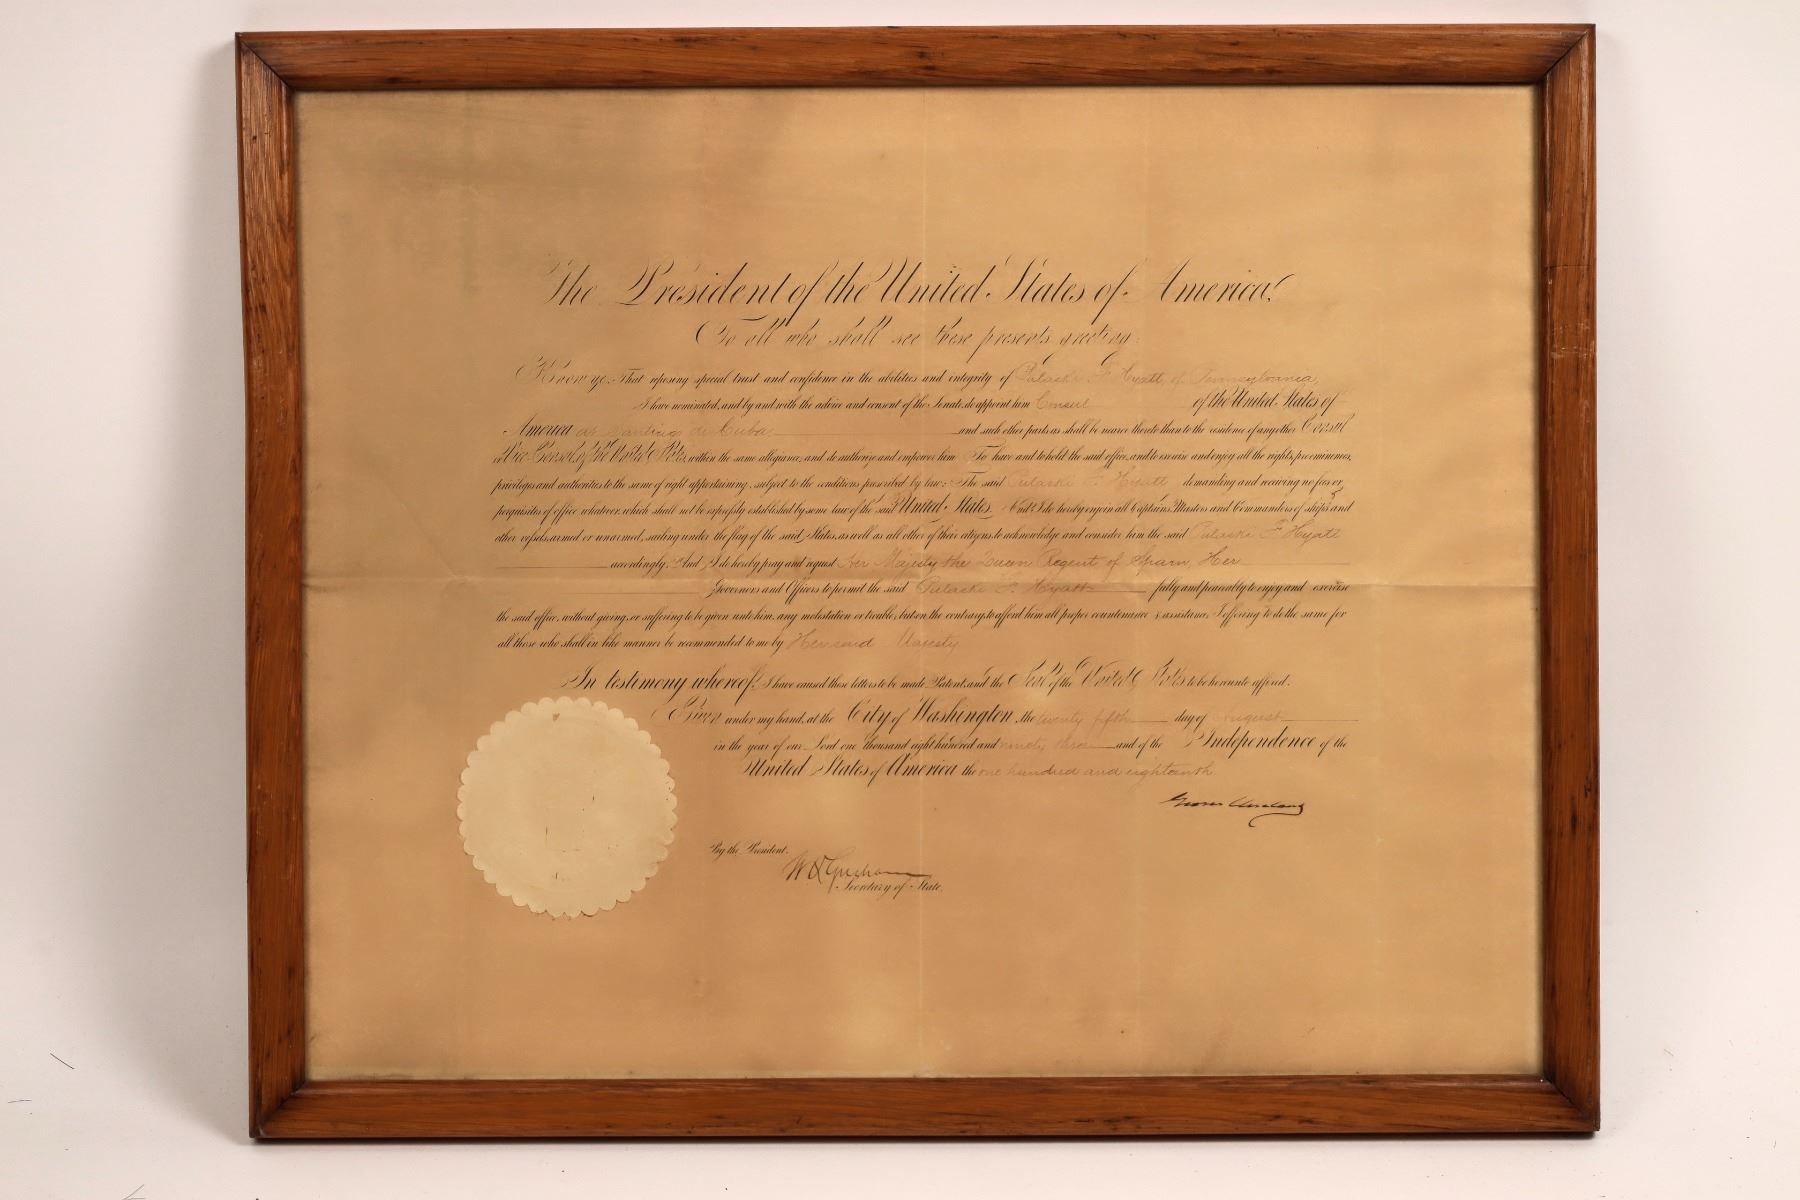 The President of the United States of America,
To all who shall see these presents, greeting:
Know ye: That reposing special trust and confidence in the abilities and integrity of Pulaski F. Hyatt, of Pennsylvania,
I have nominated, and by and with the advice and consent of the Senate, do appoint him Consul of the United States of
America at Santiago de Cuba and such other parts as shall be nearer thereto than to the residence of any other Consul
or Vice-Consul of the United States, within the same allegiance; and do authorize and empower him To have and to hold the said office, and to exercise and enjoy all the rights, preeminences,
privileges and authorities to the same of right appertaining, subject to the conditions prescribed by law: The said Pulaski F. Hyatt demanding and receiving no fees or
perquisites of office whatever, which shall not be expressly established by some law of the said United States. And I do hereby enjoin all Captains, Masters and Commanders of ships and
other vessels, armed or unarmed, sailing under the flag of the said States, as well as all other of their citizens, to acknowledge and consider him the said Pulaski F. Hyatt
accordingly. And I do hereby pray and request Her Majesty the Queen Regent of Spain, Her
Governors and Officers to permit the said Pulaski F. Hyatt fully and peaceably to enjoy and exercise
the said office, without giving, or suffering to be given unto him, any molestation or trouble, but on the contrary, to afford him all proper countenance & assistance; I offering to do the same for
all those who shall in like manner be recommended to me by Her said Majesty
In testimony whereof, I have caused these letters to be made Patent, and the Seal of the United States to be hereunto affixed.
Given under my hand, at the City of Washington, the twenty fifth day of August
in the year of our Lord one thousand eight hundred and ninety three and of the Independence of the
United States of America the one hundred and eighteenth.
Grover Cleveland
By the President:
W Q Gresham
Secretary of State.